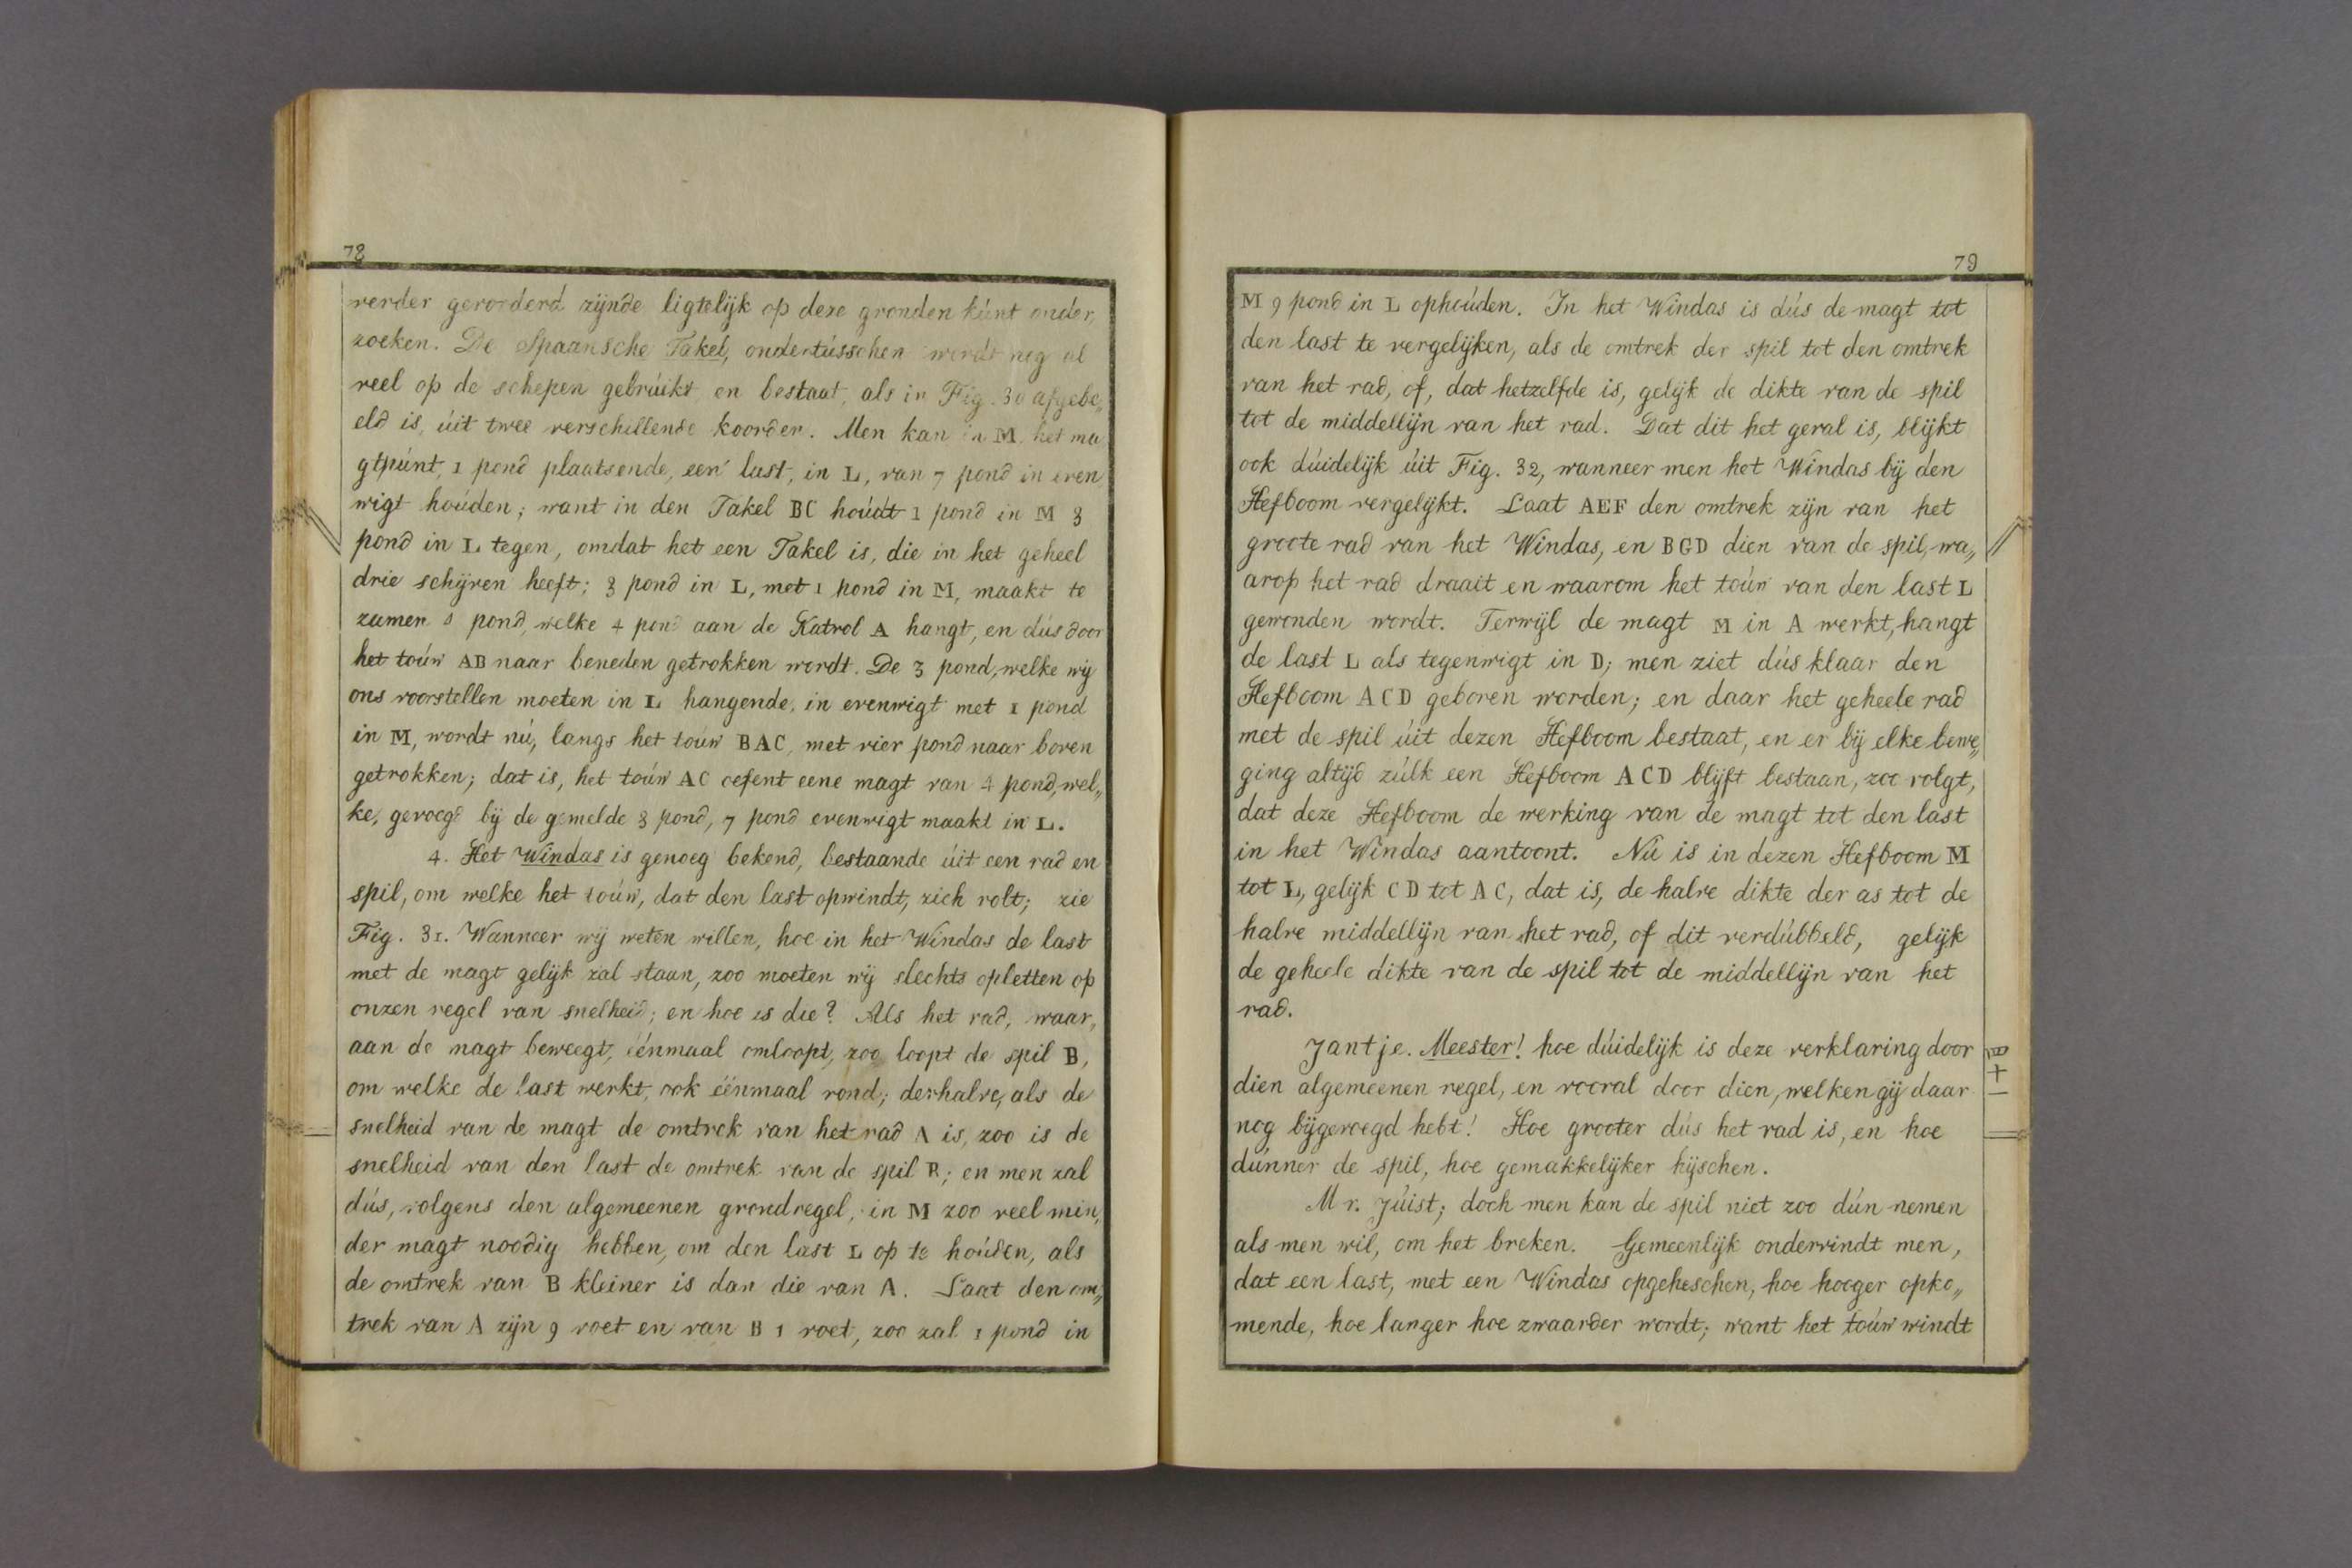 78
verder gevorderd zijnde ligtelijk op deze gronden kúnt onder„
zoeken. De Spaansche Takel, ondertússchen wordt nog al
veel op de schepen gebrúikt, en bestaat, als in Fig. 30 afgebe„
eld is, úit twee verschillende koorden. Men kan in M, het ma„
gtpúnt, 1 pond plaatsende, een last, in L, van 7 pond in even
wigt hoúden; want in den Takel BC hoúdt 1 pond in M 3
pond in L tegen, omdat het een Takel is, die in het geheel
drie schijven heeft; 3 pond in L, met 1 pond in M, maakt te
zamen pond, welke 4 pond aan de Katrol A hangt, en dús door
het toúw AB naar beneden getrokken wordt. De 3 pond, welke wij
ons voorstellen moeten in L hangende, in evenwigt met 1 pond
in M, wordt nú, langs het toúw BAC, met vier pond naar boven
getrokken; dat is, het toúw AC oefent eene magt van 4 pond, wel„
ke, gevoegd bij de gemelde 3 pond, 7 pond evenwigt maakt in L.
4. Het Windas is genoeg bekend, bestaande úit een rad en
spil, om welke het toúw, dat den last opwindt, zich rolt; zie
Fig. 31. Wanneer wij weten willen, hoe in het Windas de last
met de magt gelijk zal staan, zoo moeten wij slechts opletten op
onzen regel van snelheid; en hoe is die? Als het rad, waar„
aan de magt beweegt, éénmaal omloopt, zoo loopt de spil B,
om welke de last werkt, ook éénmaal rond; derhalve, als de
snelheid van de magt de omtrek van het rad A is, zoo is de
snelheid van den last de omtrek van de spil B; en men zal
dús, volgens den algemeenen grondregel, in M zoo veel min„
der magt noodig hebben, om den last L op te hoúden, als
de omtrek van B kleiner is dan die van A. Laat den om„
trek van A zijn 9 voet en van B 1 voet, zoo zal 1 pond in
79
M 9 pond in L ophoúden. In het Windas is dús de magt tot
den last te vergelijken, als de omtrek der spil tot den omtrek
van het rad, of, dat hetzelfde is, gelijk de dikte van de spil
tot de middellijn van het rad. Dat dit het geval is, blijkt
ook dúidelijk úit Fig. 32, wanneer men het Windas bij den
Hefboom vergelijkt. Laat AEF den omtrek zijn van het
groote rad van het Windas, en BGD dien van de spil, wa„
arop het rad draait en waarom het toúw van den last L
gewonden wordt. Terwijl de magt M in A werkt, hangt
de last L als tegenwigt in D; men ziet dús klaar den
Hefboom ACD geboren worden; en daar het geheele rad
met de spil úit dezen Hefboom bestaat, en er bij elke bewe„
ging altijd zúlk een Hefboom ACD blijft bestaan, zoo volgt,
dat deze Hefboom de werking van de magt tot den last
in het Windas aantoont. Nú is in dezen Hefboom M
tot L, gelijk CD tot AC, dat is, de halve dikte der as tot de
halve middellijn van het rad, of dit verdúbbeld, gelijk
de geheele dikte van de spil tot de middellijn van het
rad.
Jantje. Meester! hoe dúidelijk is deze verklaring door
dien algemeenen regel, en vooral door dien, welken gij daar
nog bijgevoegd hebt! Hoe grooter dús het rad is, en hoe
dúnner de spil, hoe gemakkelijker hijschen.
Mr. Júist; doch men kan de spil niet zoo dún nemen
als men wil, om het breken. Gemeenlijk ondervindt men,
dat een last, met een Windas opgeheschen, hoe hooger opko„
mende, hoe langer hoe zwaarder wordt; want het toúw windt